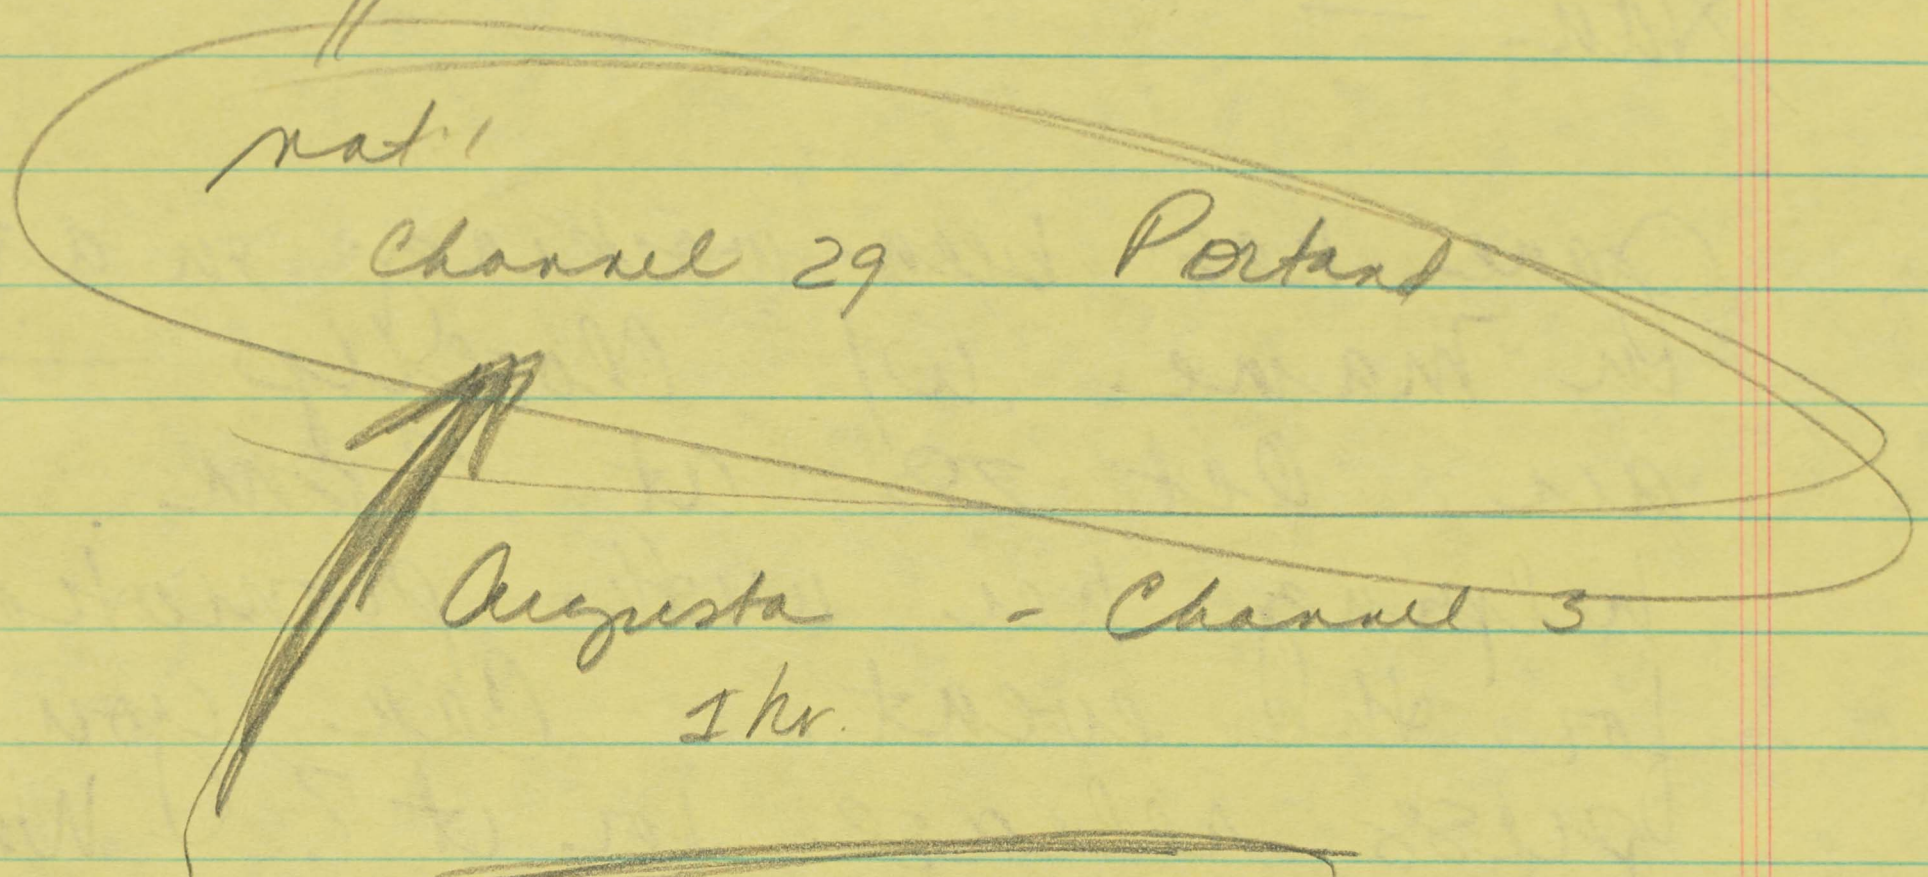 nat'l
Channel 29 Portand
Augusta - Channel 3
1 hr.